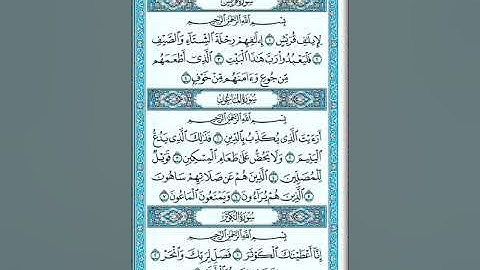 سُورَةُ قُرَيْشٍ
بِسْمِ اللَّهِ الرَّحْمَٰنِ الرَّحِيمِ
لِإِيلَٰفِ قُرَيْشٍ ١ إِۦلَٰفِهِمْ رِحْلَةَ الشِّتَآءِ وَالصَّيْفِ
٢ فَلْيَعْبُدُوا۟ رَبَّ هَٰذَا الْبَيْتِ ٣ الَّذِىٓ أَطْعَمَهُم
مِّن جُوعٍ وَءَامَنَهُم مِّنْ خَوْفٍۭ ٤
سُورَةُ الْمَاعُونِ
بِسْمِ اللَّهِ الرَّحْمَٰنِ الرَّحِيمِ
أَرَءَيْتَ الَّذِى يُكَذِّبُ بِالدِّينِ ١ فَذَٰلِكَ الَّذِى يَدُعُّ
الْيَتِيمَ ٢ وَلَا يَحُضُّ عَلَىٰ طَعَامِ الْمِسْكِينِ ٣ فَوَيْلٌ
لِّلْمُصَلِّينَ ٤ الَّذِينَ هُمْ عَن صَلَاتِهِمْ سَاهُونَ
٥ الَّذِينَ هُمْ يُرَآءُونَ ٦ وَيَمْنَعُونَ الْمَاعُونَ ٧
سُورَةُ الْكَوْثَرِ
بِسْمِ اللَّهِ الرَّحْمَٰنِ الرَّحِيمِ
إِنَّآ أَعْطَيْنَٰكَ الْكَوْثَرَ ١ فَصَلِّ لِرَبِّكَ وَانْحَرْ ٢